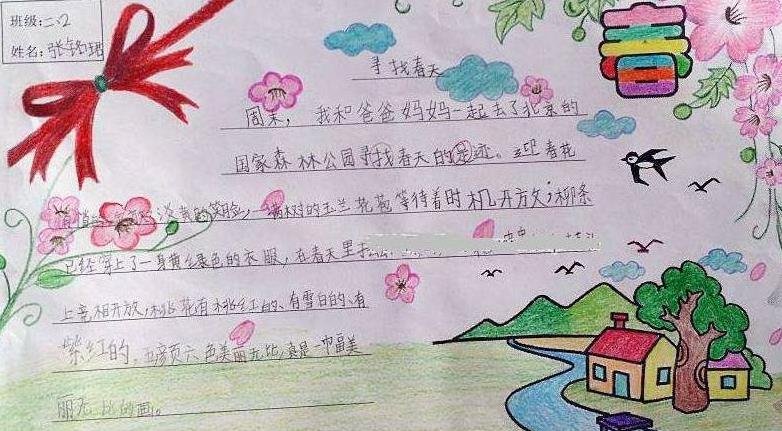 班级:二.2
姓名:张铭珺
春
寻找春天
周末,我和爸爸妈妈一起去了北京的
国家森林公园寻找春天的足迹。迎春花
淡黄的笑脸,一树树的玉兰花苞等待着时机开放;柳条
已经穿上了一身黄绿色的衣服,在春天里
上竞相开放,桃花有桃红的、有雪白的、有
紫红的,五颜六色美丽无比,真是一幅美
丽无比的画。